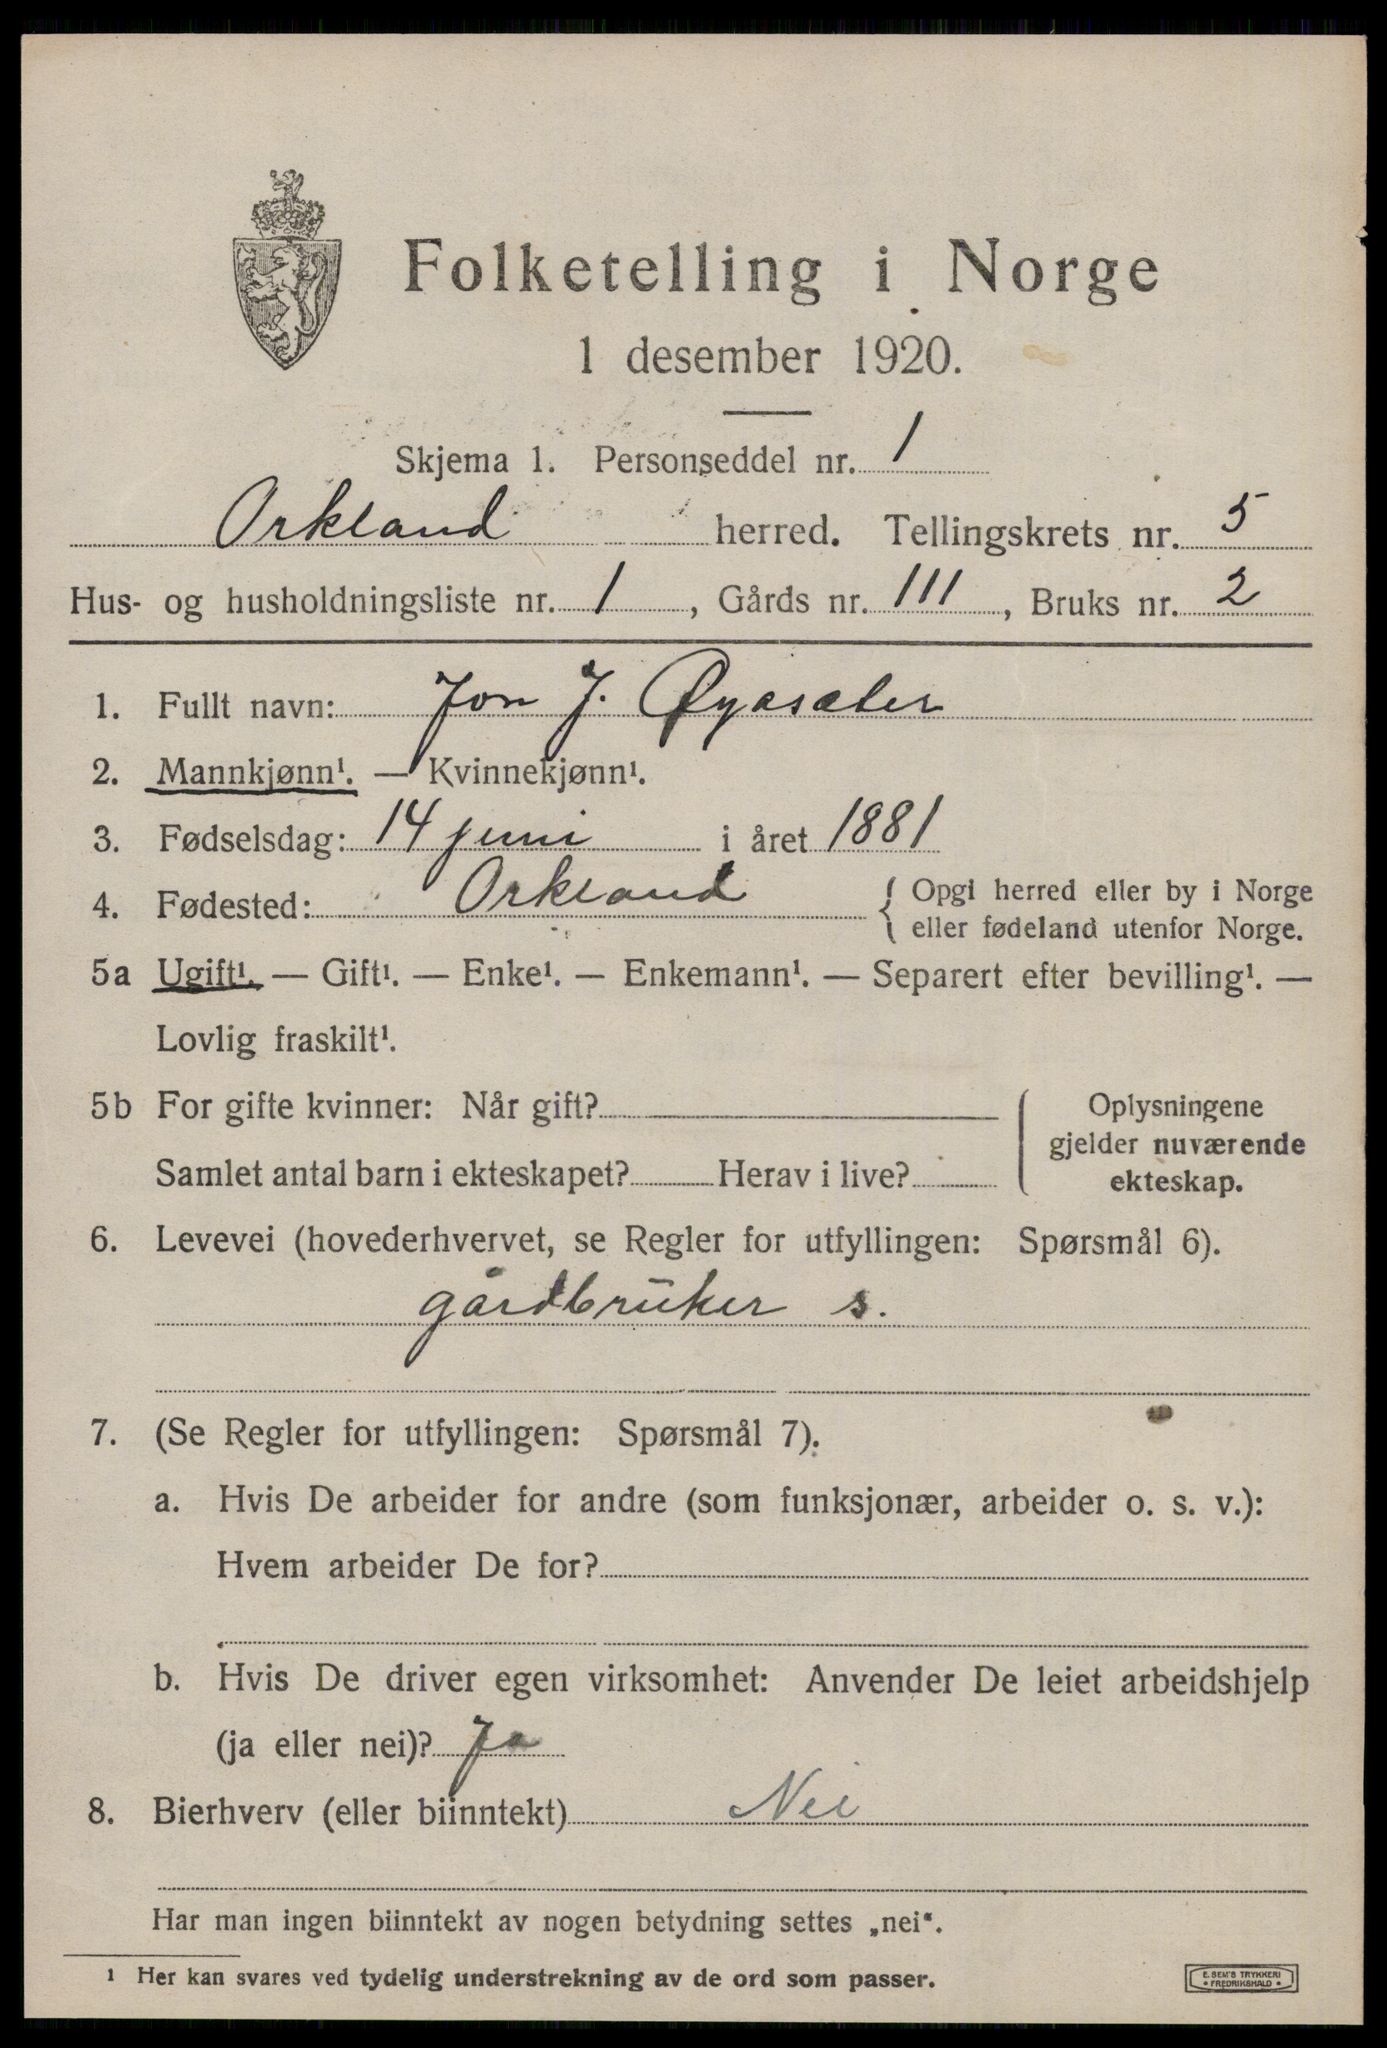 Folketelling i Norge
1 desember 1920.
Skjema 1. Personseddel nr. 1
Orkland herred. Tellingskrets nr. 5
Hus- og husholdningsliste nr. 1, Gårds nr. 111, Bruks nr. 2
1. Fullt navn: Jon J. Øyasæter
2. Mannkjønn¹. — Kvinnekjønn¹.
3. Fødselsdag: 14 juni i året 1881
4. Fødested: Orkland { Opgi herred eller by i Norge
eller fødeland utenfor Norge.
5a Ugift¹. — Gift¹. — Enke¹. — Enkemann¹. — Separert efter bevilling¹. —
Lovlig fraskilt¹.
5b For gifte kvinner: Når gift?
Samlet antal barn i ekteskapet? Herav i live?
Oplysningene
gjelder nuværende
ekteskap.
6. Levevei (hovederhvervet, se Regler for utfyllingen: Spørsmål 6).
gårdbrüker s.
7. (Se Regler for utfyllingen: Spørsmål 7).
a. Hvis De arbeider for andre (som funksjonær, arbeider o. s. v.):
Hvem arbeider De for?
b. Hvis De driver egen virksomhet: Anvender De leiet arbeidshjelp
(ja eller nei)? Ja
8. Bierhverv (eller biinntekt) Nei
Har man ingen biinntekt av nogen betydning settes „nei“.
1 Her kan svares ved tydelig understrekning av de ord som passer.
E. SEM'S TRYKKERI
• FREDRIKSHALD •